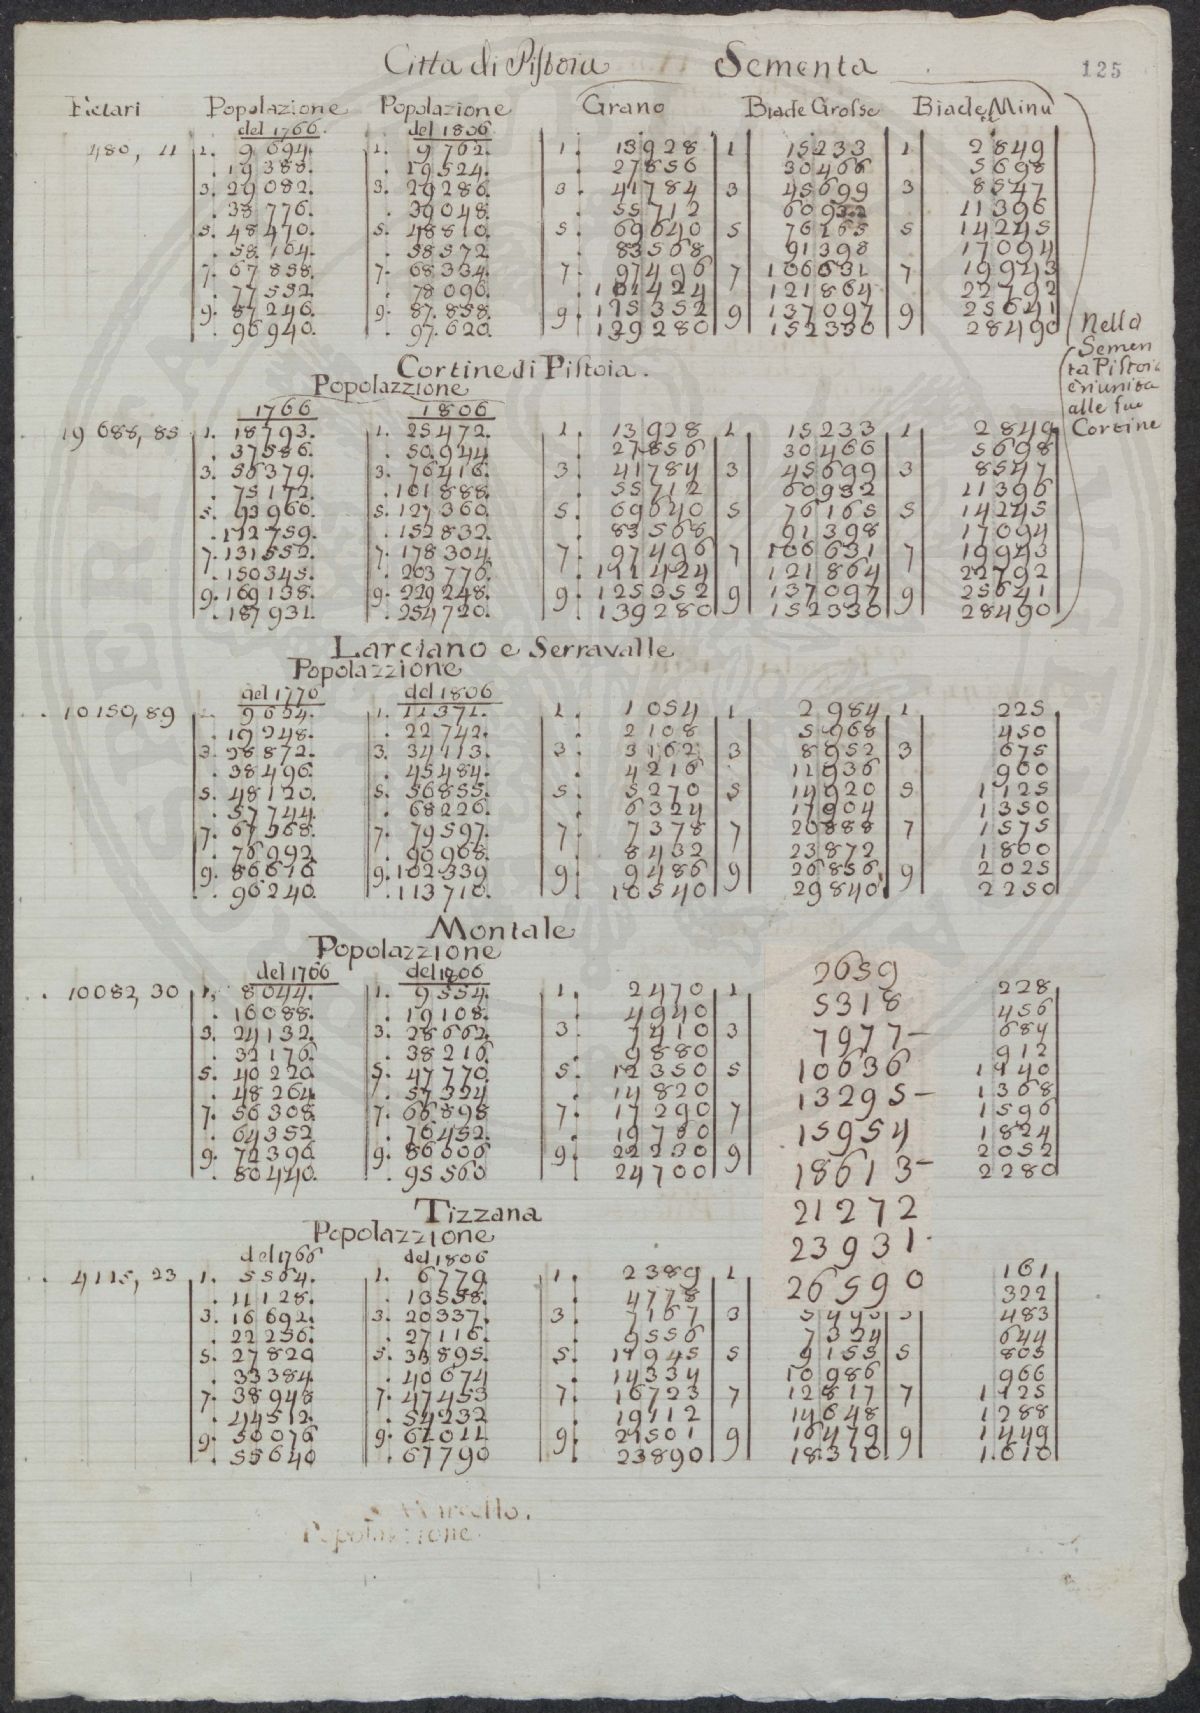 Citta di Pistoia Sementa 125
Ectari Popolazione Popolazione Grano Biade Grosse Biade Minu
del 1766. del 1806.
480, 11 1. 9 694. 1. 9 762. 1. 13928 1 15233 1 2849
. 19 388. . 19 524. . 27856 30466 5698
3. 29 082. 3. 29 286. 3. 41784 3 45699 3 8547
. 38 776. . 39 048. . 55712 60932 11396
5. 48 470. 5. 48 810. 5. 69640 5 76165 5 14245
. 58. 164. . 58 572. . 83568 91398 17094
7. 67 858. 7. 68 334. 7. 97496 7 106631 7 19943
. 77 552. . 78 096. . 111424 121864 22792
9. 87 246. 9. 87. 858. 9. 125352 9 137097 9 25641
. 96 940. . 97. 620. . 139280 152330 28490
Nella
Semen
ta Pistoia
è riunita
alle sue
Cortine
Cortine di Pistoia.
Popolazzione
1766 1806
19 688, 85 1. 18793. 1. 25472. 1. 13928 1 15233 1 2849
. 37586. . 50.944. . 27856 30466 5698
3. 56379. 3. 76416. 3. 41784 3 45699 3 8547
. 75172. . 101888. . 55712 60932 11396
5. 93966. 5. 127360. 5. 69640 5 76165 5 14245
. 112759. . 152832. . 83568 91398 17094
7. 131552. 7. 178304. 7. 97496 7 106631 7 19943
. 150345. . 203776. . 111424 121864 22792
9. 169138. 9. 229248. 9. 125352 9 137097 9 25641
. 187931. . 254720. . 139280 152330 28490
Larciano e Serravalle
Popolazzione
del 1770 del 1806
10150, 89 1. 9624. 1. 11371. 1. 1054 1 2984 1 225
. 19248. . 22742. . 2108 5968 450
3. 28872. 3. 34113. 3. 3162 3 8952 3 675
. 38496. . 45484. . 4216 11936 900
5. 48120. 5. 56855. 5. 5270 5 14920 5 1125
. 57744. . 68226. . 6324 17904 1350
7. 67368. 7. 79597. 7. 7378 7 20888 7 1575
. 76992. . 90968. . 8432 23872 1800
9. 86616 9. 102339 9. 9486 9 26856 9 2025
. 96240. . 113710. . 10540 29840 2250
Montale
Popolazzione
del 1766 del 1806
10082, 30 1. 8044. 1. 9554. 1. 2470 1 2659 228
. 16088. . 19108. . 4940 5318 456
3. 24132. 3. 28662. 3. 7410 3 7977– 684
. 32176. . 38216. . 9880 10636 912
5. 40220. 5. 47770. 5. 12350 5 13295– 1140
. 48264. . 57324. . 14820 15954 1368
7. 56308. 7. 66898 7. 17290 7 18613– 1596
. 64352 . 76452. . 19760 21272 1824
9. 72396 9. 86006 9. 22230 9 23931 2052
. 80440. . 95560 . 24700 26590 2280
Tizzana
Popolazzione
del 1766 del 1806
4115, 23 1. 5564. 1. 6779. 1. 2389 1 161
. 11128. . 13558. . 4778 322
3. 16692. 3. 20337. 3. 7167 3 5493 3 483
. 22256. . 27116. . 9556 7324 644
5. 27820 5. 33895. 5. 11945 5 9155 5 805
. 33384. . 40674 . 14334 10986 966
7. 38948 7. 47453 7. 16723 7 12817 7 1125
. 44512. . 54232 . 19112 14648 1288
9. 50076 9. 61011 9. 21501 9 16479 9 1449
. 55640 . 67790 . 23890 18310 1.610
Popolazzione